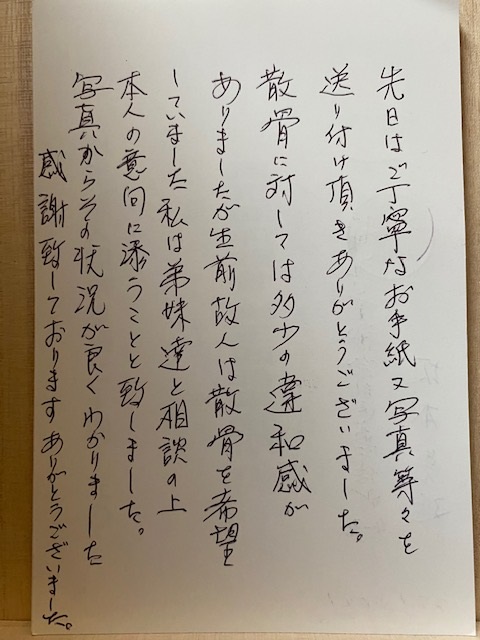 先日はご丁寧なお手紙又写真等々を
送り付け頂きありがとうございました。
散骨に対しては多少の違和感が
ありましたが生前故人は散骨を希望
していました私は弟妹達と相談の上
本人の意向に添うことと致しました。
写真からその状況が良くわかりました
感謝致しております ありがとうございました。